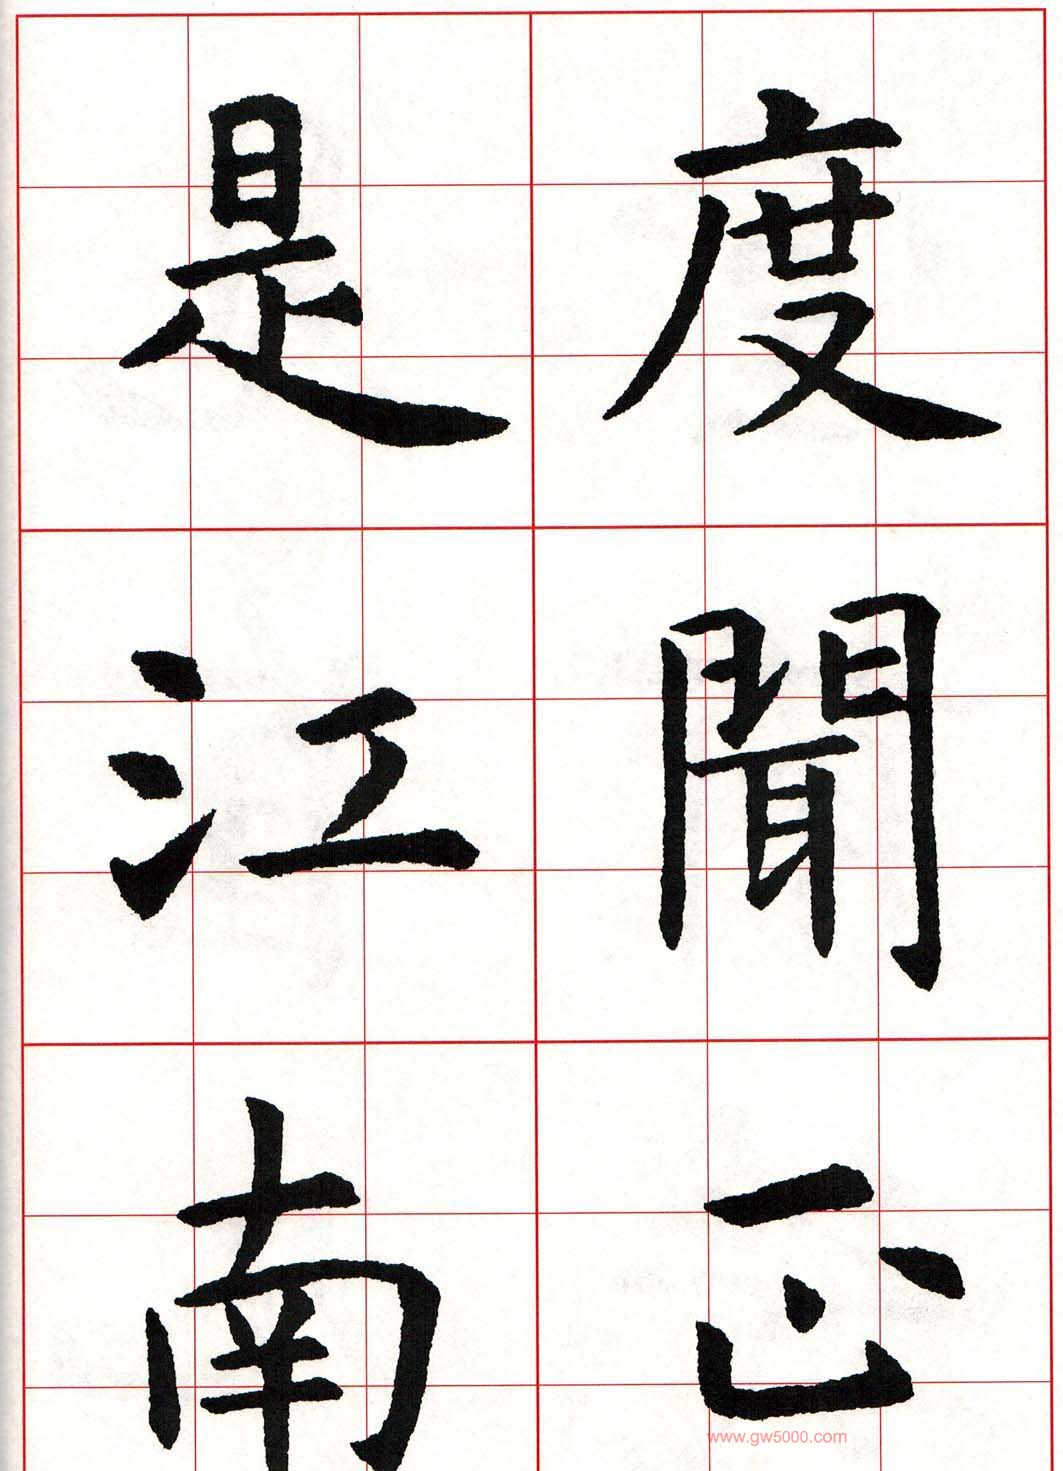 度聞正
是江南
www.gw5000.com